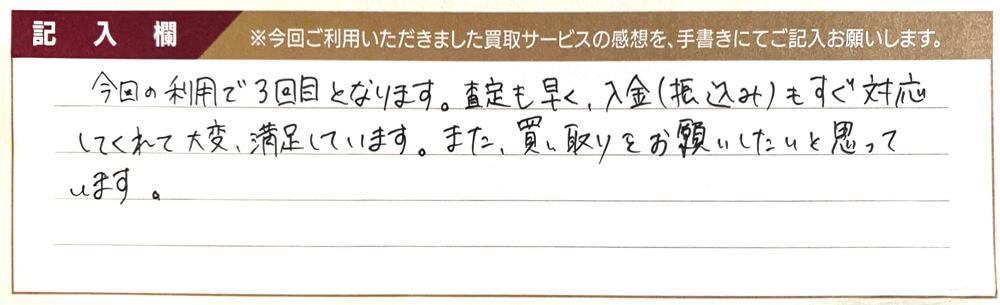 記入欄 ※今回ご利用いただきました買取サービスの感想を、手書きにてご記入お願いします。
今回の利用で3回目となります。査定も早く、入金(振込み)もすぐ対応
してくれて大変、満足しています。また、買い取りをお願いしたいと思って
います。